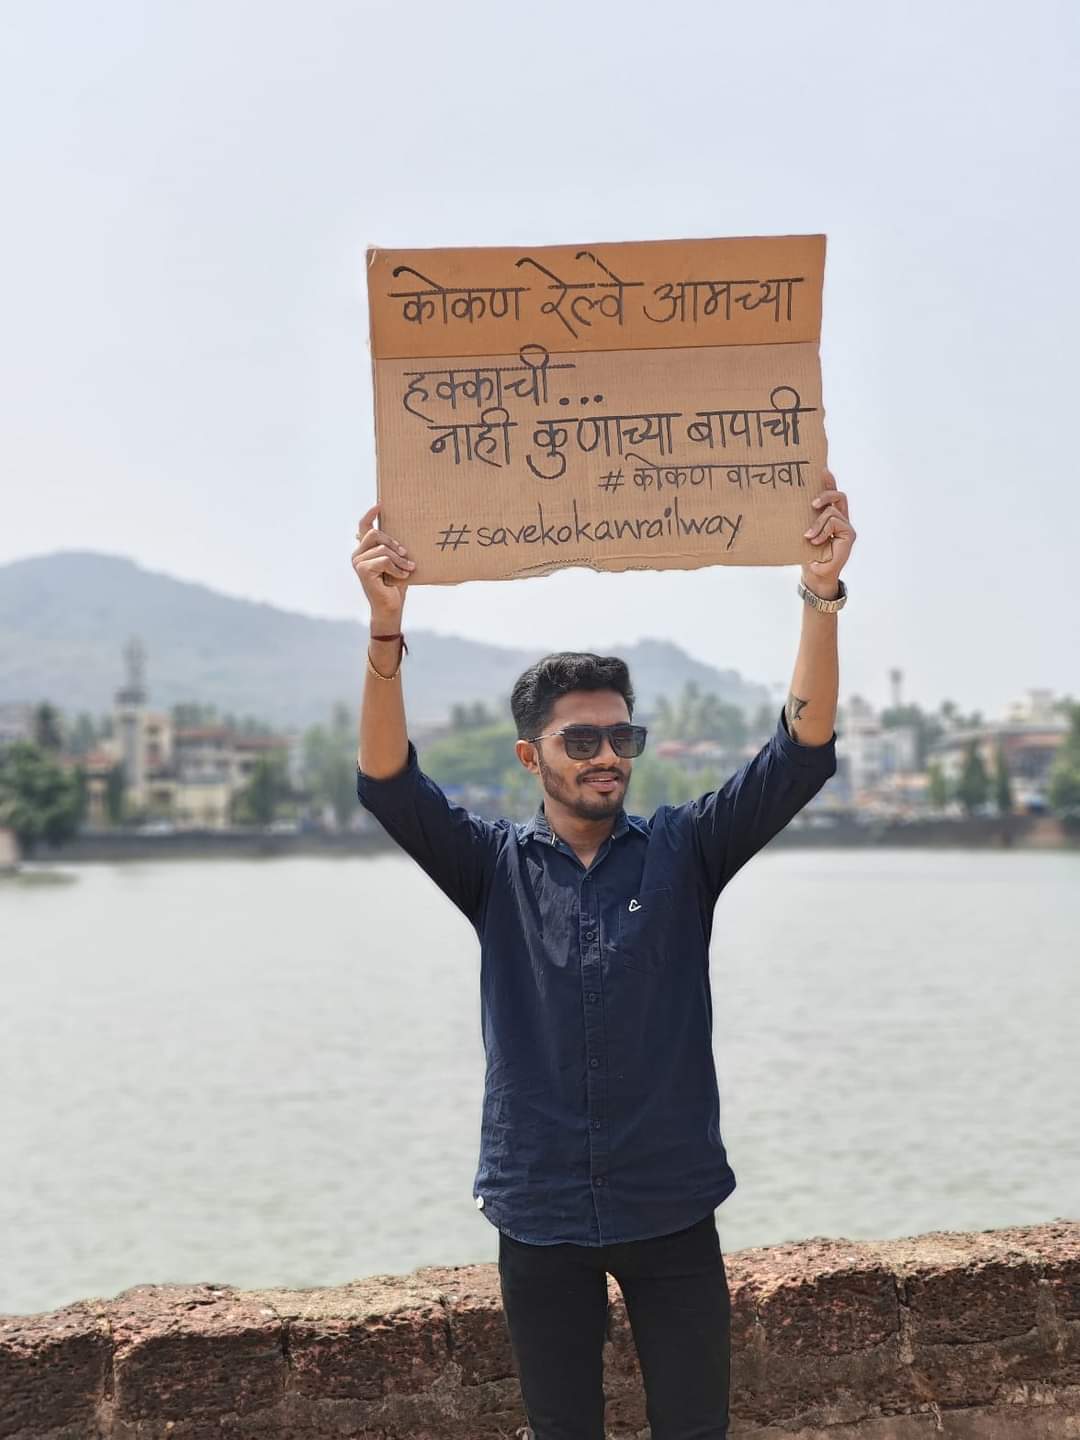 कोकण रेल्वे आमच्या
हक्काची...
नाही कुणाच्या बापाची
#कोकण वाचवा
#savekokanrailway